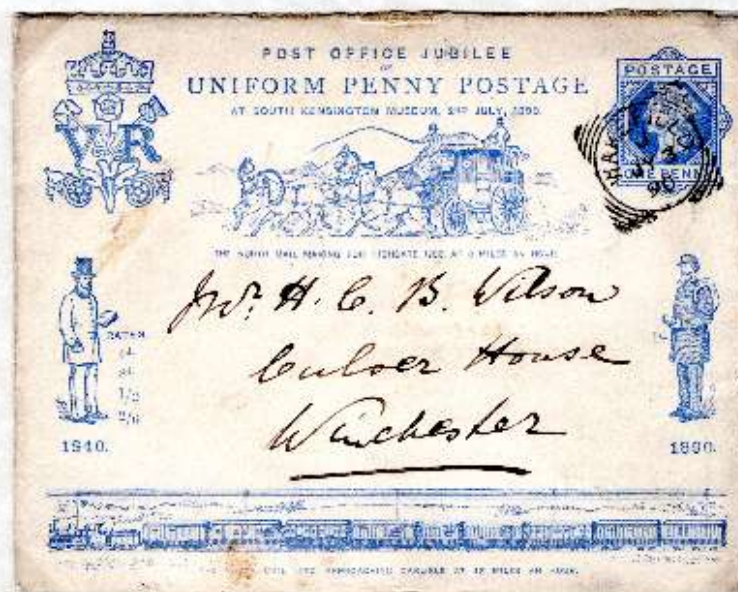 POST OFFICE JUBILEE
OF
UNIFORM PENNY POSTAGE
AT SOUTH KENSINGTON MUSEUM, 2ND JULY, 1890.
VR
POSTAGE
ONE PENNY
JY 3
90
THE NORTH MAIL MAKING FOR HIGHGATE AT 8 MILES AN HOUR
Mr. H. C. B. Wilson
Culver House
Winchester
RATES
1/2
1840.
1890.
APPROACHING CARLISLE AT 48 MILES AN HOUR.